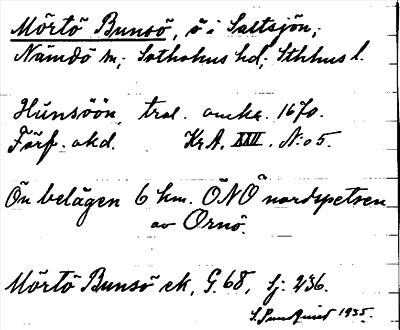 Mörtö Bunsö, ö i Saltsjön;
Nämdö sn; Sotholms hd; Sthlms l.
Hunsöön, trol. omkr. 1670.
Förf. okd. KrA. XXII. N:o 5.
Ön belägen 6 km. ÖNÖ nordspetsen
av Ornö.
Mörtö Bunsö ek, G. 68, Sj: 236.
S. Sundquist 1935.